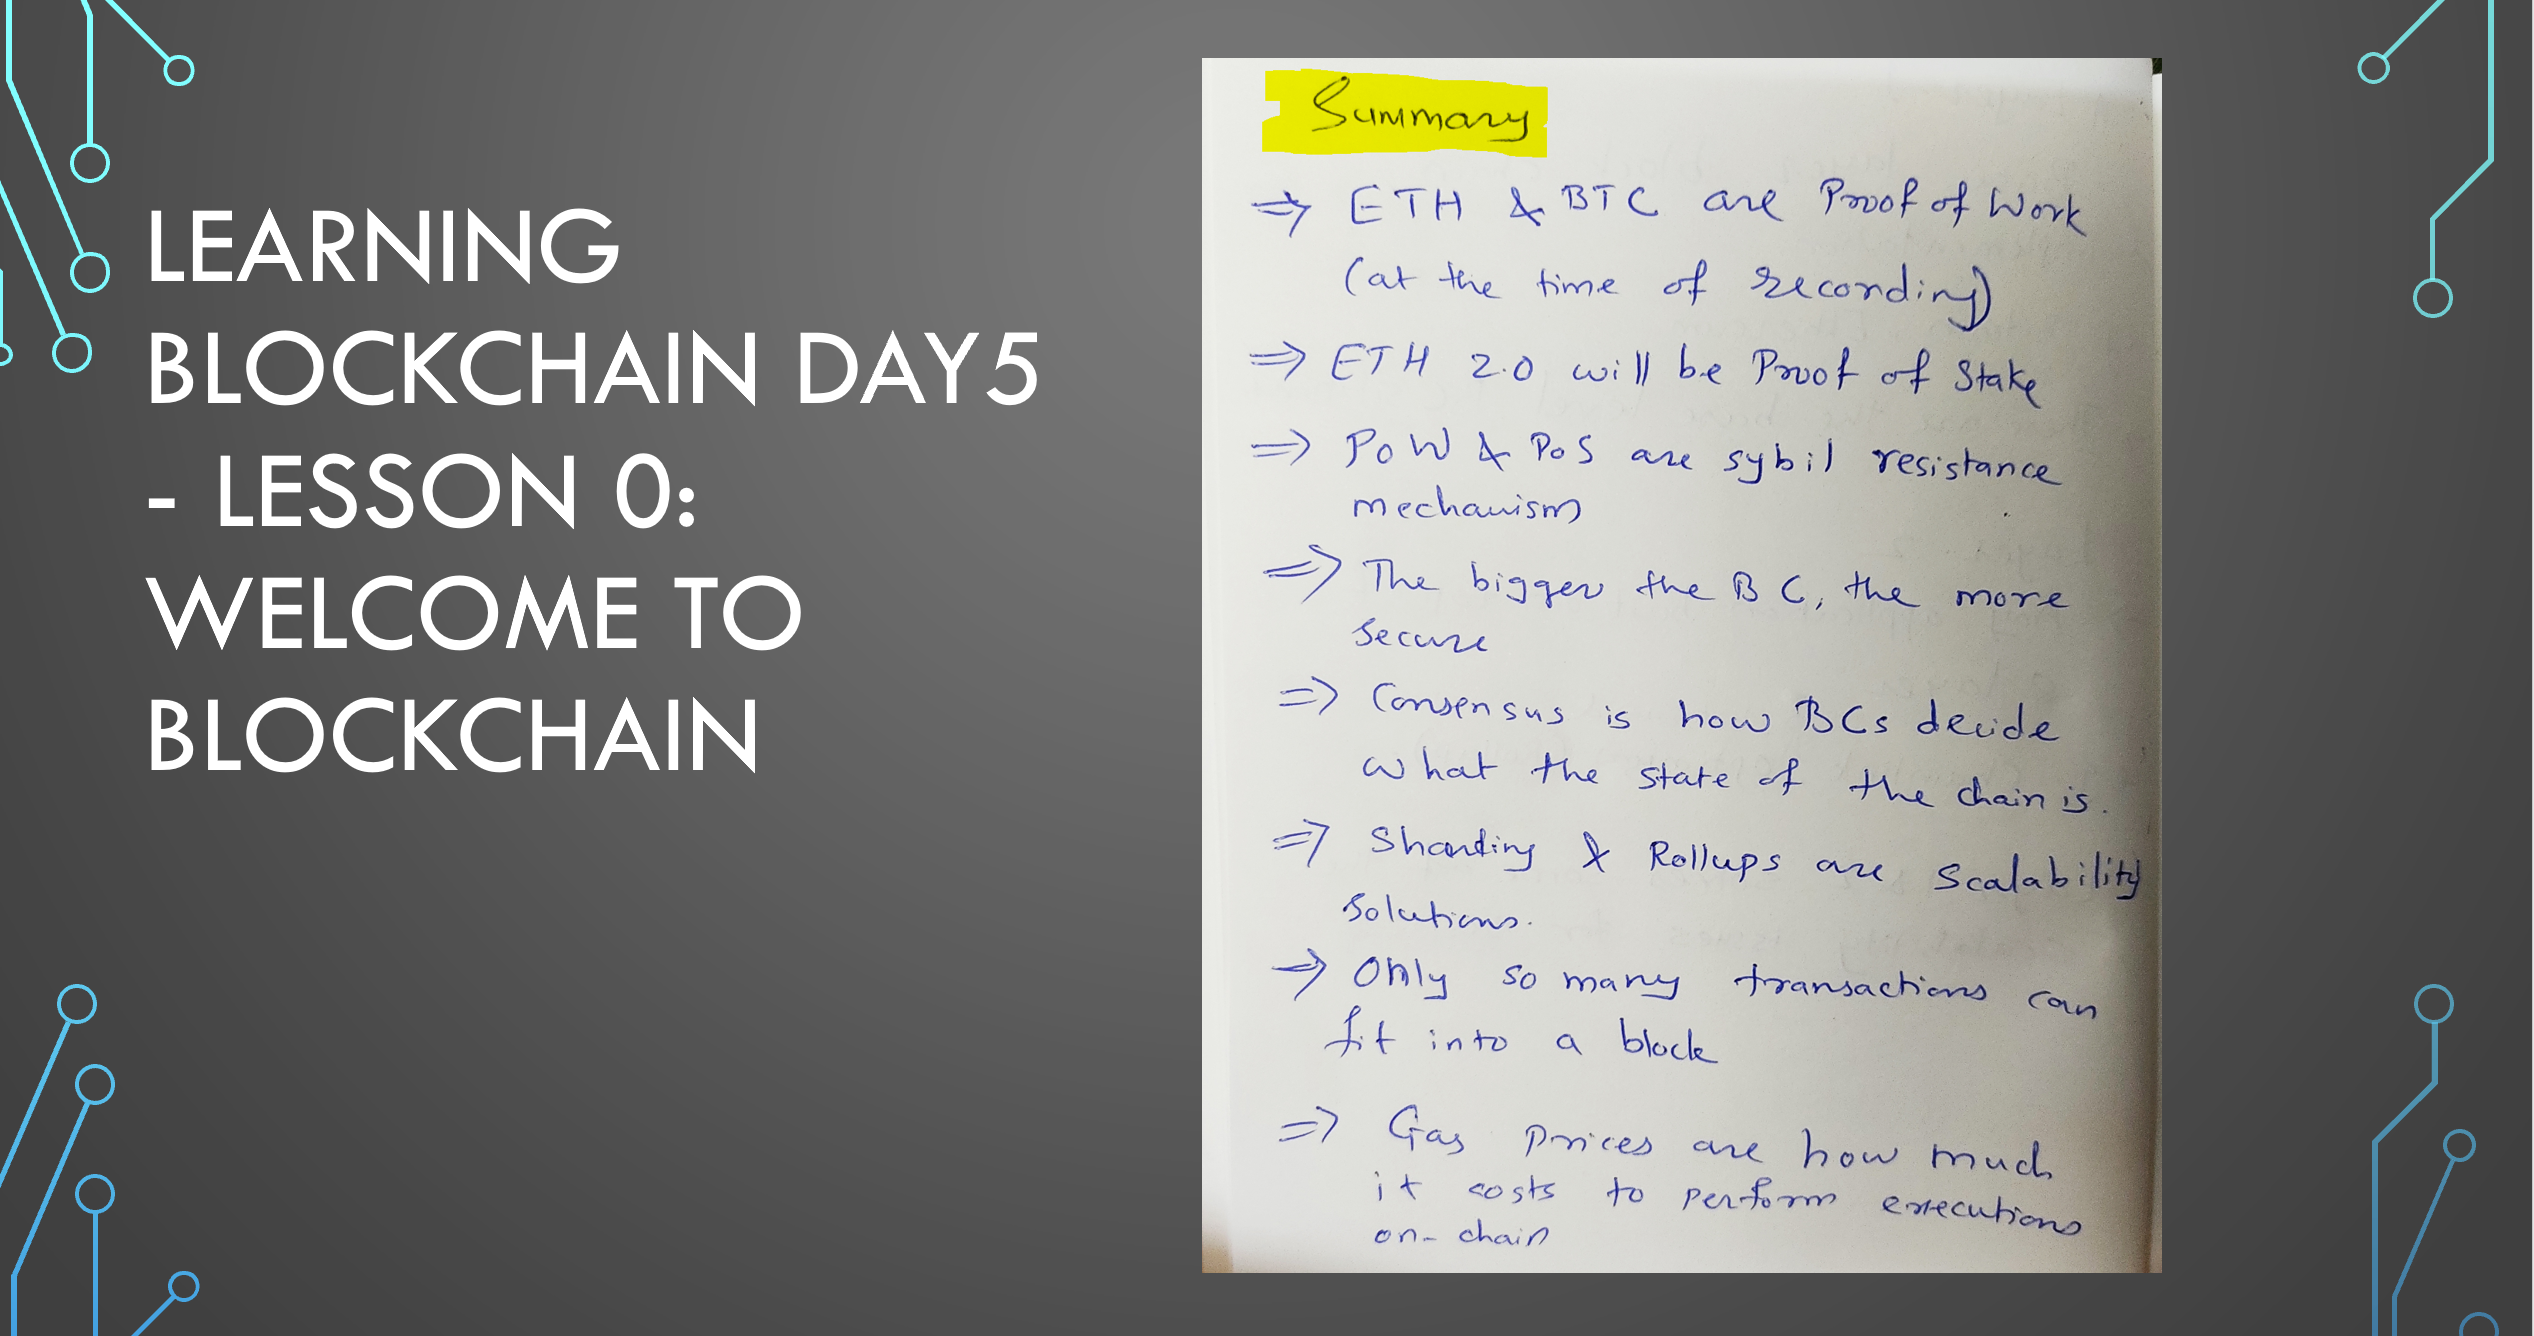 LEARNING
BLOCKCHAIN DAY5
- LESSON 0:
WELCOME TO
BLOCKCHAIN
Summary
⇒ ETH & BTC are Proof of Work
(at the time of recording)
⇒ ETH 2.0 will be Proof of Stake
⇒ PoW & PoS are sybil resistance
mechanism
⇒ The bigger the BC, the more
secure
⇒ Consensus is how BCs decide
what the state of the chain is.
⇒ Sharding & Rollups are Scalability
Solutions.
⇒ Only so many transactions can
fit into a block
⇒ Gas prices are how much
it costs to perform executions
on-chain